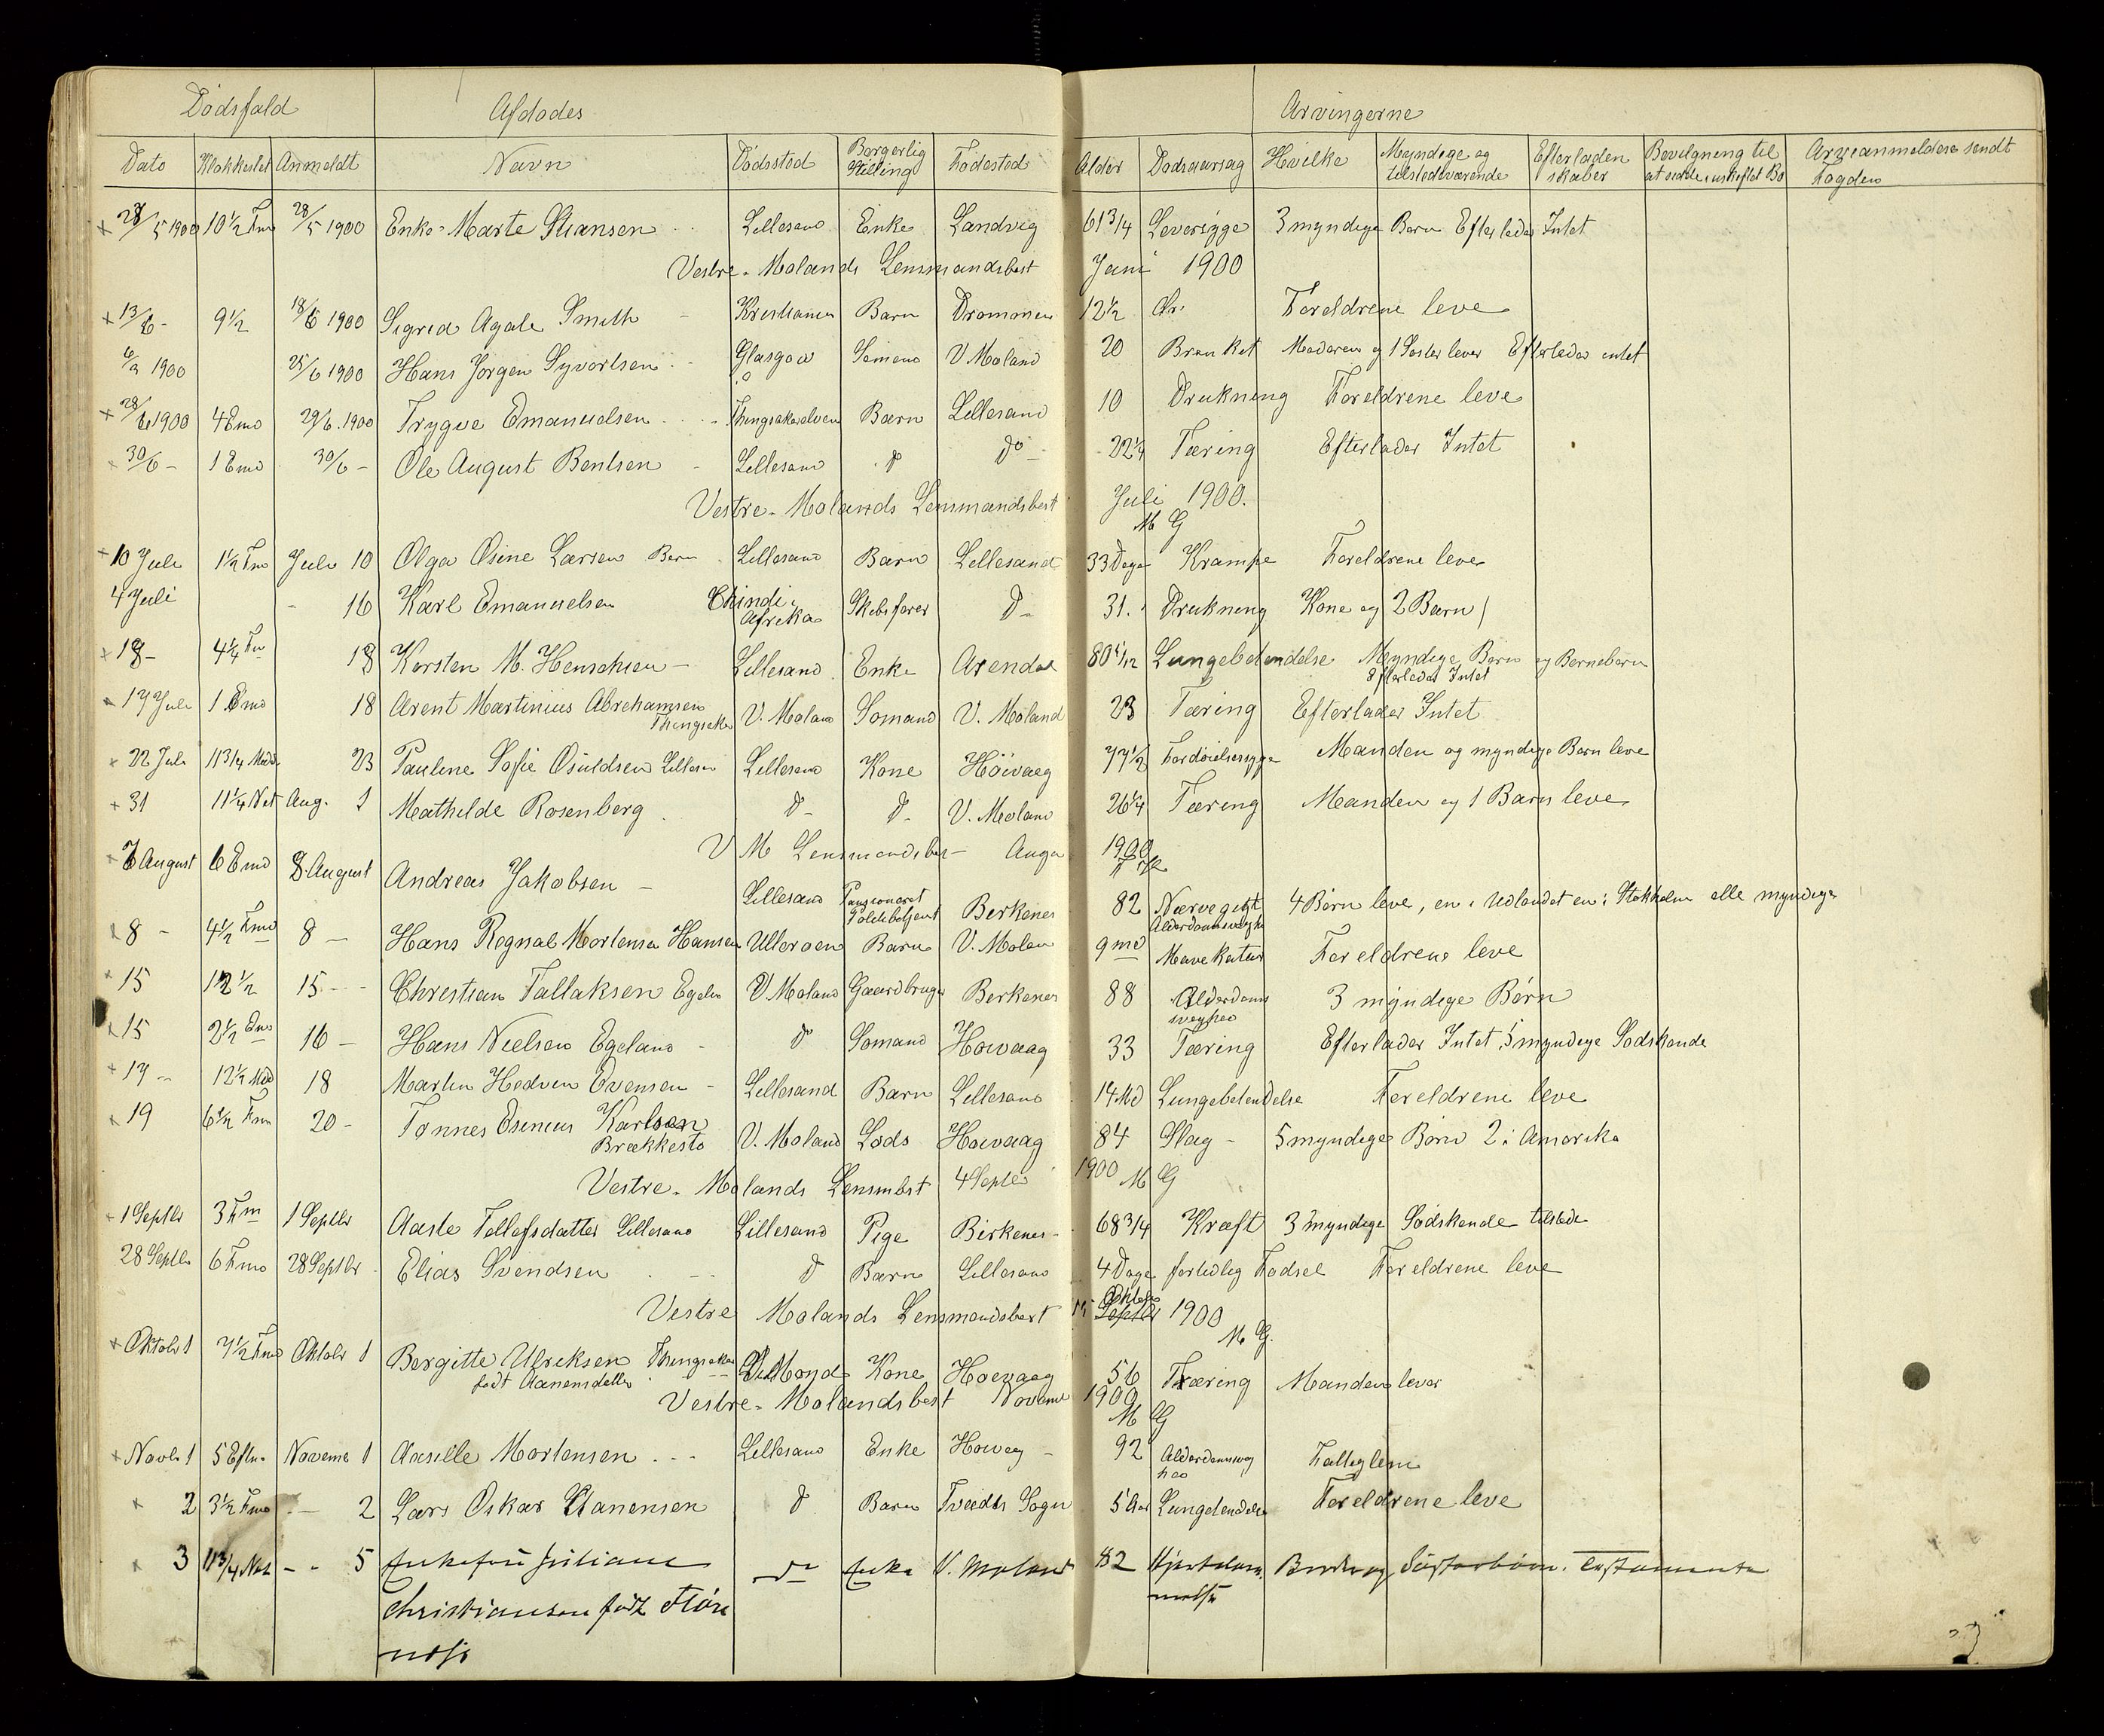 Dødsfald Afdødes Arvingerne
Dato Klokkeslet Anmeldt Navn Dødssted Borgerlig Stilling Fødested Alder Dødsaarsag Hvilke Myndige og tilstedeværende Efterladenskaber Bevilgning til at sidde i uskiftet Bo Arveanmeldelse sendt Fogden
28/5 1900 10 1/2 Fm 28/5 1900 Enke Marte Stiansen Lillesand Enke Landvig 61 3/4 Leversyge 3 myndige Børn Efterlader Intet
Vestre-Molands Lensmandsbest Juni 1900
13/6 - 9 1/2 18/6 1900 Sigrid Agate Smith Kristiania Barn Drammen 12 1/2 Ar. Foreldrene leve
6/3 1900 25/6 1900 Hans Jørgen Syvertsen Glasgow Sømand V Moland 20 Moderen og 1 Søster lever Efterlader intet
28/6 1900 4 Emd 29/6. 1900 Trygve Emanuelsen Thingsakerelven Barn Lillesand 10 Drukning Foreldrene leve
30/6 - 1 Emd 30/6 - Ole August Bentsen Lillesand d do - 22 1/4 Tæring Efterlader Intet
Vestre-Molands Lensmandsbest Juli 1900.
M G
10 Juli 1 1/2 Fm Juli 10 Olga Osine Larsen Barn Lillesand Barn Lillesand 33 Dage Krampe Foreldrene leve
4 Juli - 16 Karl Emanuelsen Chinde i Afrika Skibsfører D - 31. Drukning Kone og 2 Børn
18 - 4 1/4 Fm 18 Karsten M. Henschien - Lillesand Enke Arendal 80 1/12 Lungebetendelse Myndige Børn og Bernebørn
Efterlader Intet
17 Juli 1 Emd 18 Arent Martinius Abrahamsen Thingsaker V. Moland Sømand V. Moland 23 Tæring Efterlader Intet
22 Juli 11 3/4 Midd 23 Pauline Sofie Osuldsen Lillesan Lillesand Kone Høivaag 77 1/2 Fordøielsessyge Manden og myndige Børn leve
31 11 1/4 Nat Aug. 1 Mathilde Rosenberg d - d - V. Moland 26 1/4 Tæring Manden og 1 Barn leve
V M Lensmandsbes - Augu 1900
7 August 6 Emd 8 August Andreas Jakobsen - Lillesand Pensioneret Toldbetjent Berkenes 82 Alderdomsvaghe 4 Børn leve, en i Udlandet en i Stokholm alle myndige
8 - 4 1/2 Fmd 8 - Hans Regnal Mortensen Hansen Ulleroen Barn V. Molan 9 md Mave Katar Foreldrene leve
15 12 1/2 15 - - Christian Tallaksen Egelan V Moland Gaardbruge Berkenes 88 Alderdoms svaghed 3 myndige Børn
15 2 1/2 Em 16 - Hans Nielsen Egeland - d Sømand Høivaag 33 Tæring Efterlader Intet, 5 myndige Sødskende
17 - 12 1/2 Mid 18 Martin Hedven Evensen - Lillesand Barn Lillesand 14 Md Lungebetendelse Foreldrene leve
19 6 1/2 Fm 20 - Tønnes Esenius Karlsen Brækkestø V. Moland Lods Høivaag 84 Slag - 5 myndige Børn 2 i Amerika
Vestre-Molands Lensmbst 4 Septer 1900 M G
1 Septbr 3 Fm 1 Septbr Aaste Tellefsdatter Lillesand Lillesand Pige Birkenes - 68 3/4 Kræft 3 myndige Sødskende tilstede
28 Septbr 6 Fmd 28 Septbr Elias Svendsen d Barn Lillesand 4 Dage fortidlig Fødsel Foreldrene leve
Vestre Molands Lensmandsbest 15 Septbr Oktober 1900
M G.
Oktober 1 7 1/2 Fmd Oktobr 1 Bergitte Ulriksen Thingsaker Kone Høivaag 56 Tæring Manden lever
født Aanensdatter
Vestre-Molandsbest Novemb 1900
M G
Novbr 1 5 Eftm. Novemb 1 Aasille Mortensen Lillesand Enke Høivaag - 92 Alderdomsvaghed Fattiglem
2 3 1/2 Fmd - 2 Lars Oskar Aanensen d Barn Tveidts Sogn 5 Aar Lungetendelse Foreldrene leve
3 11 3/4 Nat - 5 Enkefru Juliane Christiansen født do Enke V. Moland 82 Hjertelam- melse Søsterbørn. Testamente